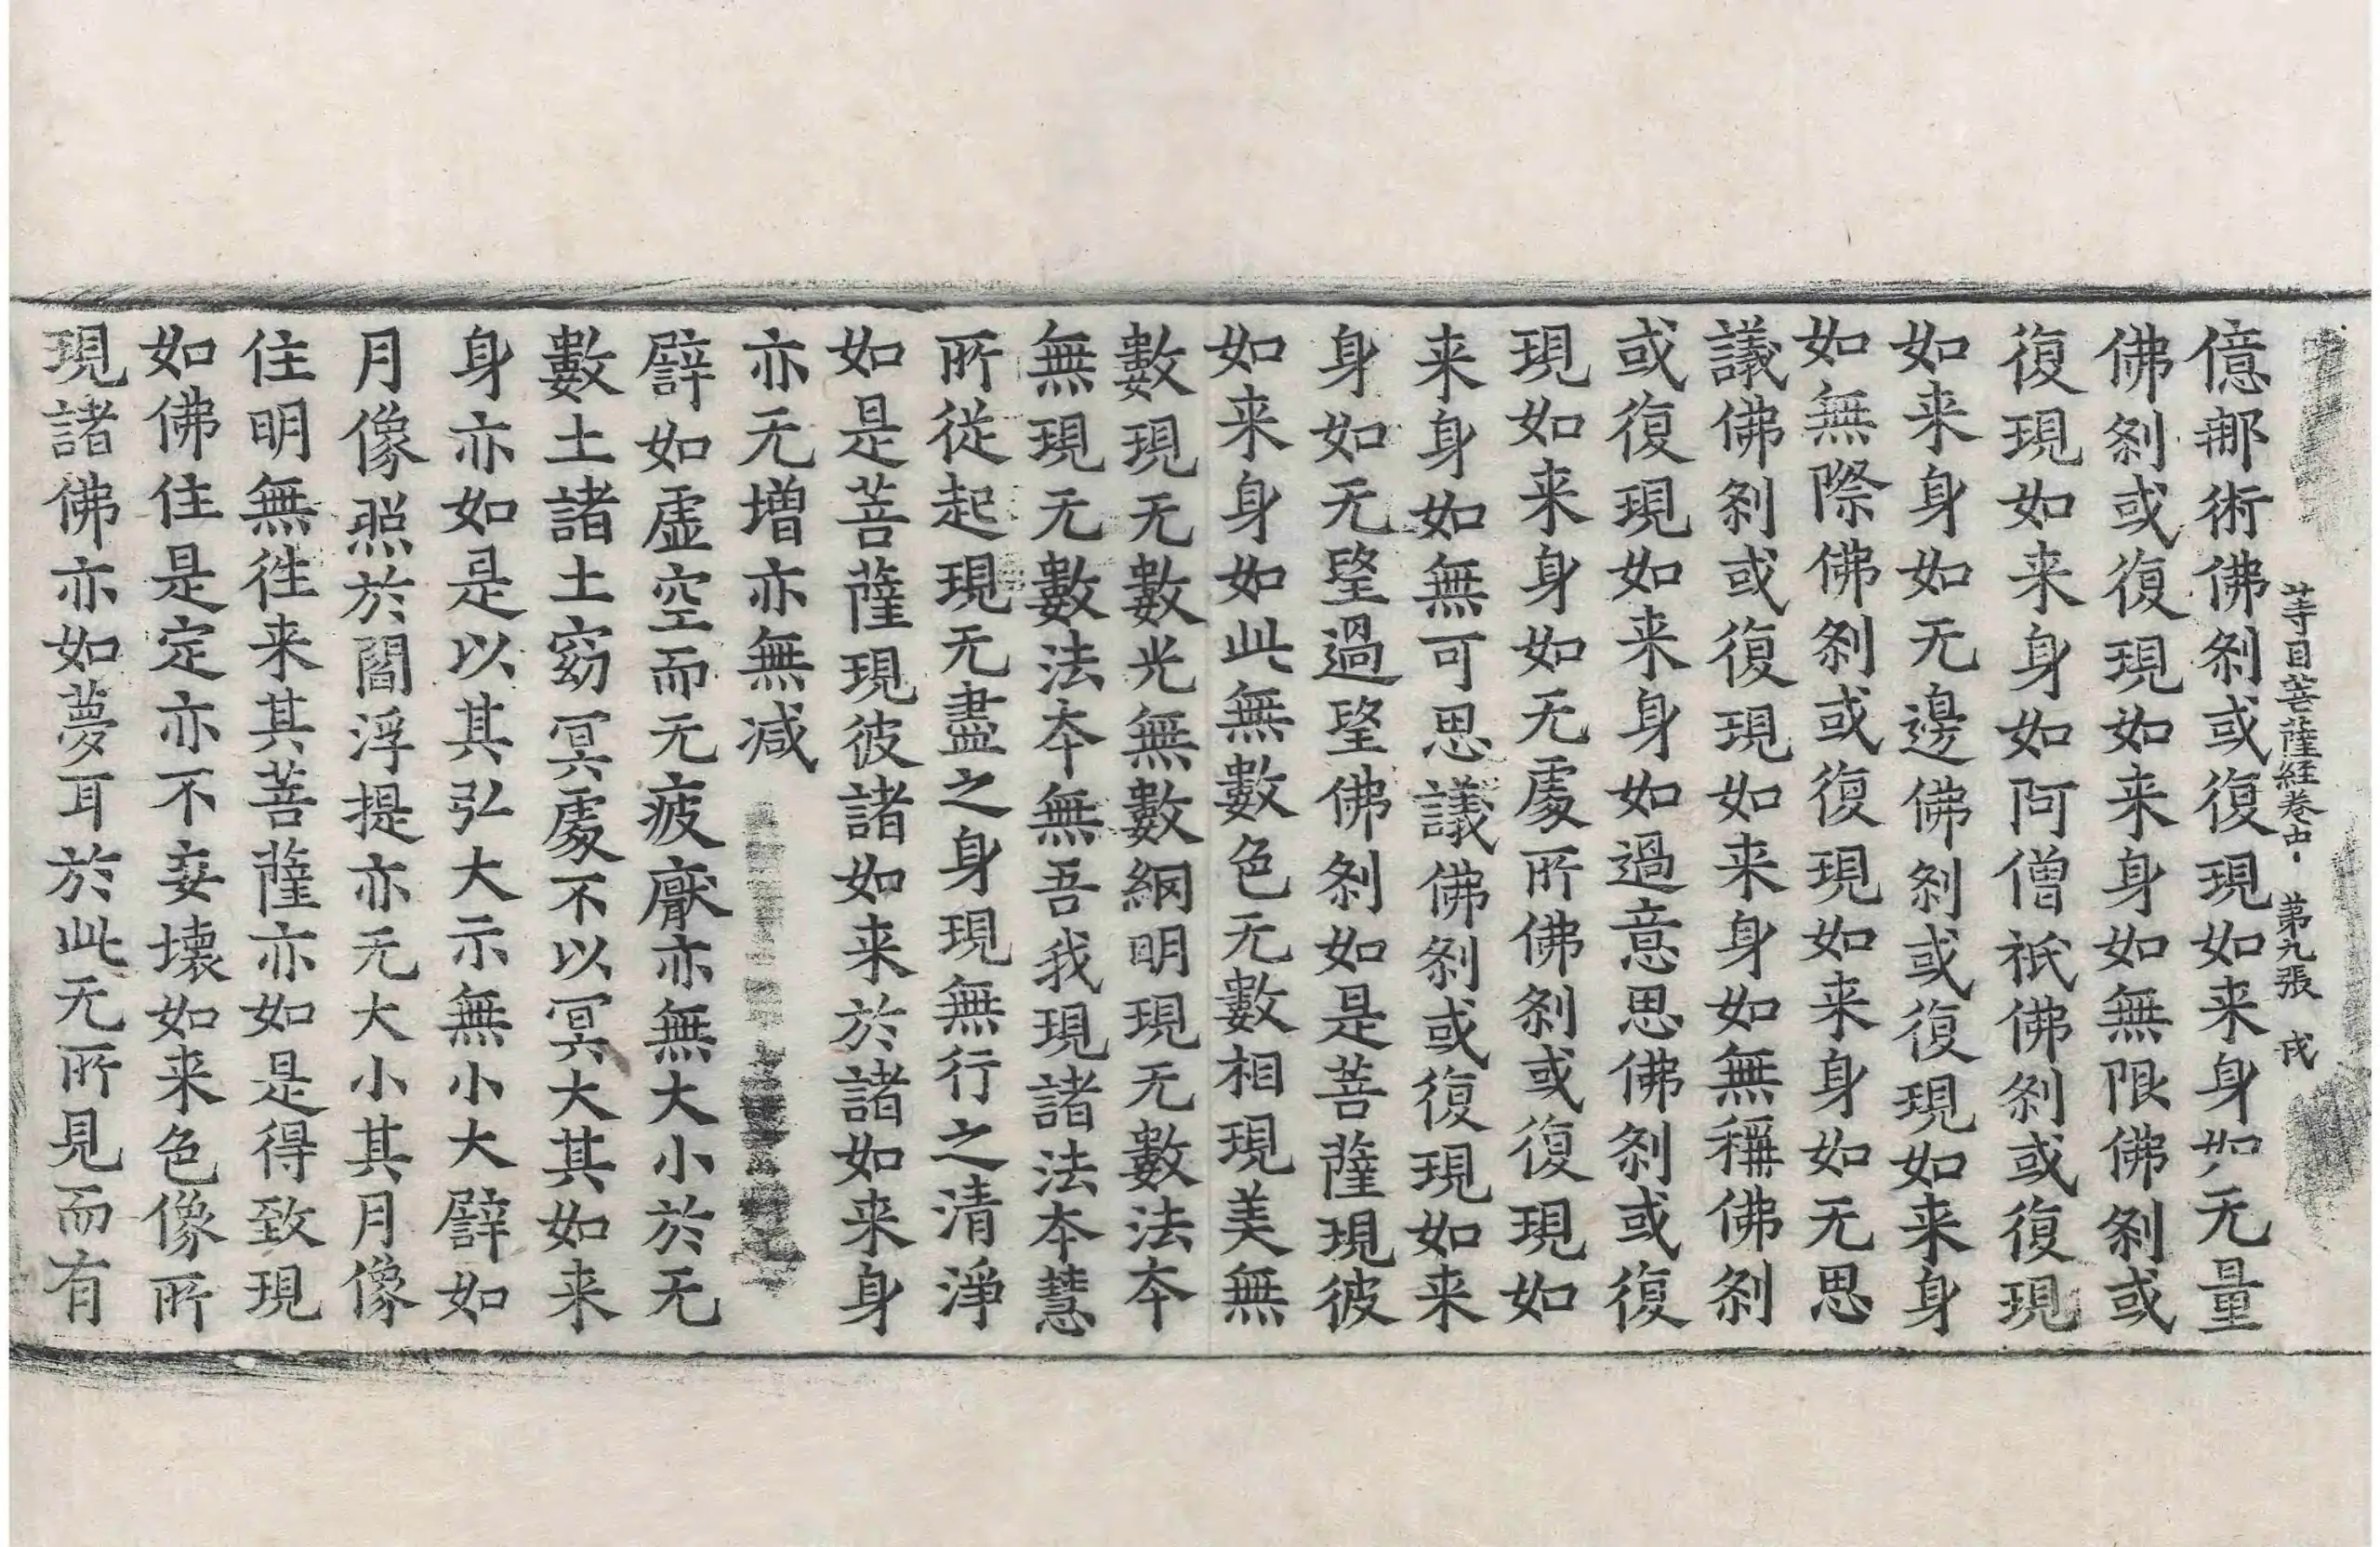 等目菩薩経巻中 第九張 戎
億𨚗術佛刹或復現如来身如无量
佛刹或復現如来身如無限佛刹或
復現如来身如阿僧祇佛刹或復現
如来身如无邊佛刹或復現如来身
如無際佛刹或復現如来身如无思
議佛刹或復現如来身如無稱佛刹
或復現如来身如過意思佛刹或復
現如来身如无處所佛刹或復現如
来身如無可思議佛刹或復現如来
身如无望過望佛刹如是菩薩現彼
如来身如此無數色无數相現美無
數現无數光無數網明現无數法本
無現无數法本無吾我現諸法本慧
所從起現无盡之身現無行之清淨
如是菩薩現彼諸如来於諸如来身
亦无增亦無減
譬如虛空而无疲厭亦無大小於无
數土諸土窈冥處不以冥大其如来
身亦如是以其弘大示無小大譬如
月像照於閻浮提亦无大小其月像
住明無徃来其菩薩亦如是得致現
如佛住是定亦不妄壞如来色像所
現諸佛亦如夢耳於此无所見而有